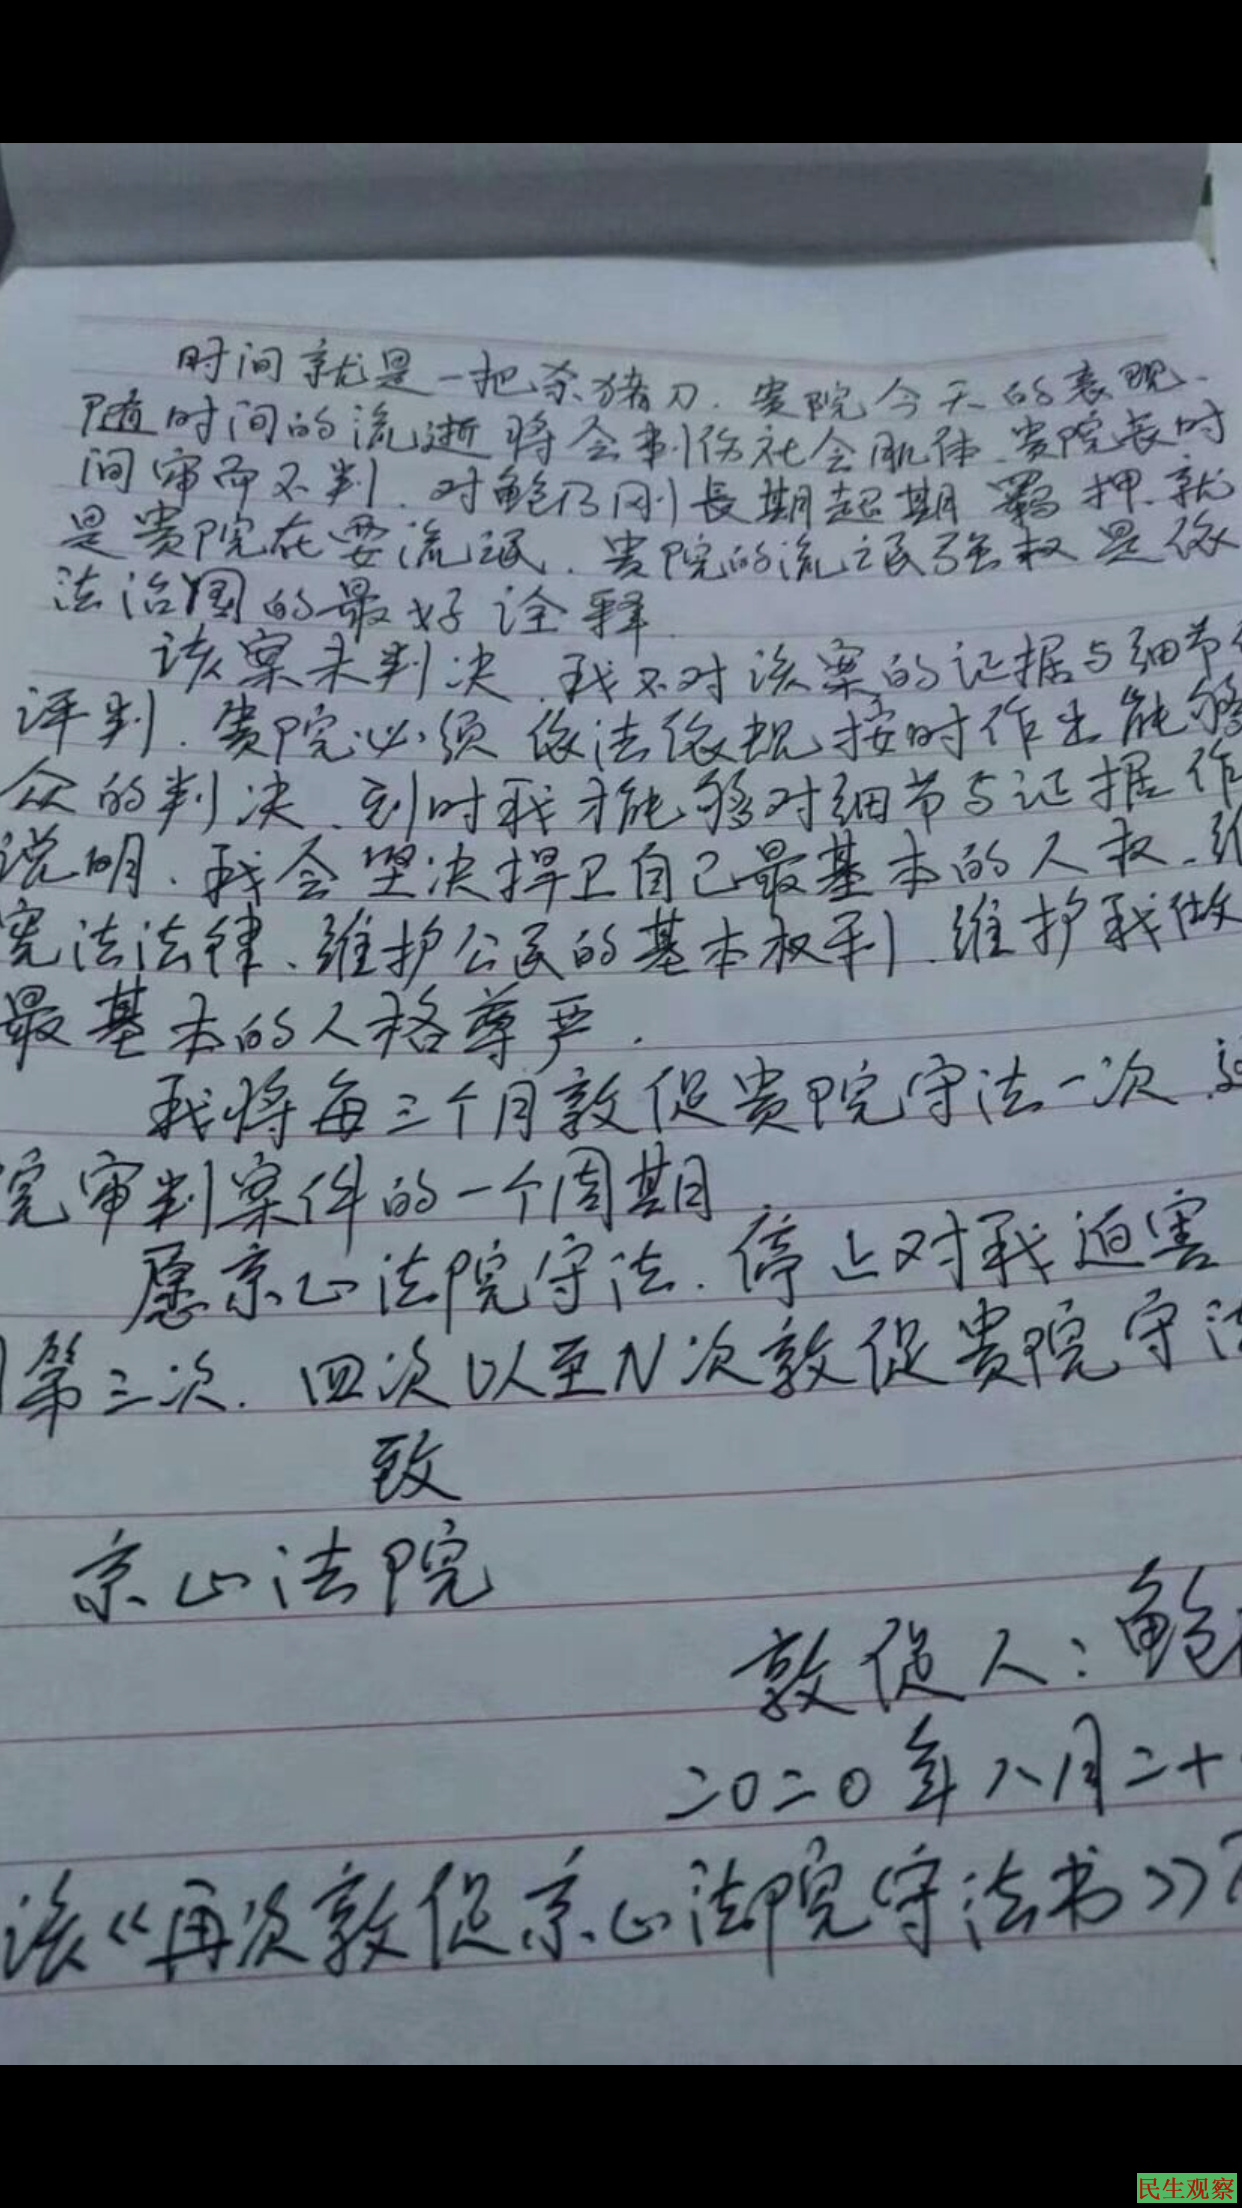 时间就是一把杀猪刀.贵院今天的表现、
随时间的流逝将会刺伤社会肌体、贵院长时
间审而不判、对鲍乃刚長期超期羁押、就
是贵院在耍流氓、贵院的流氓强权是依
法治国的最好诠释.
该案未判决、我不对该案的证据与细节
评判、贵院必须依法依规按时作出能够
众的判决、到时我才能够对细节与证据作
说明、我会坚决捍卫自己最基本的人权、维
宪法法律、维护公民的基本权利、维护我做
最基本的人格尊严.
我将每三个月敦促贵院守法一次、这
院审判案件的一个周期
愿京山法院守法、停止对我迫害
第三次.四次以至N次敦促贵院守法
致
京山法院
敦促人:鲍
二0二0年八月二十
该《再次敦促京山法院守法书》
民生观察